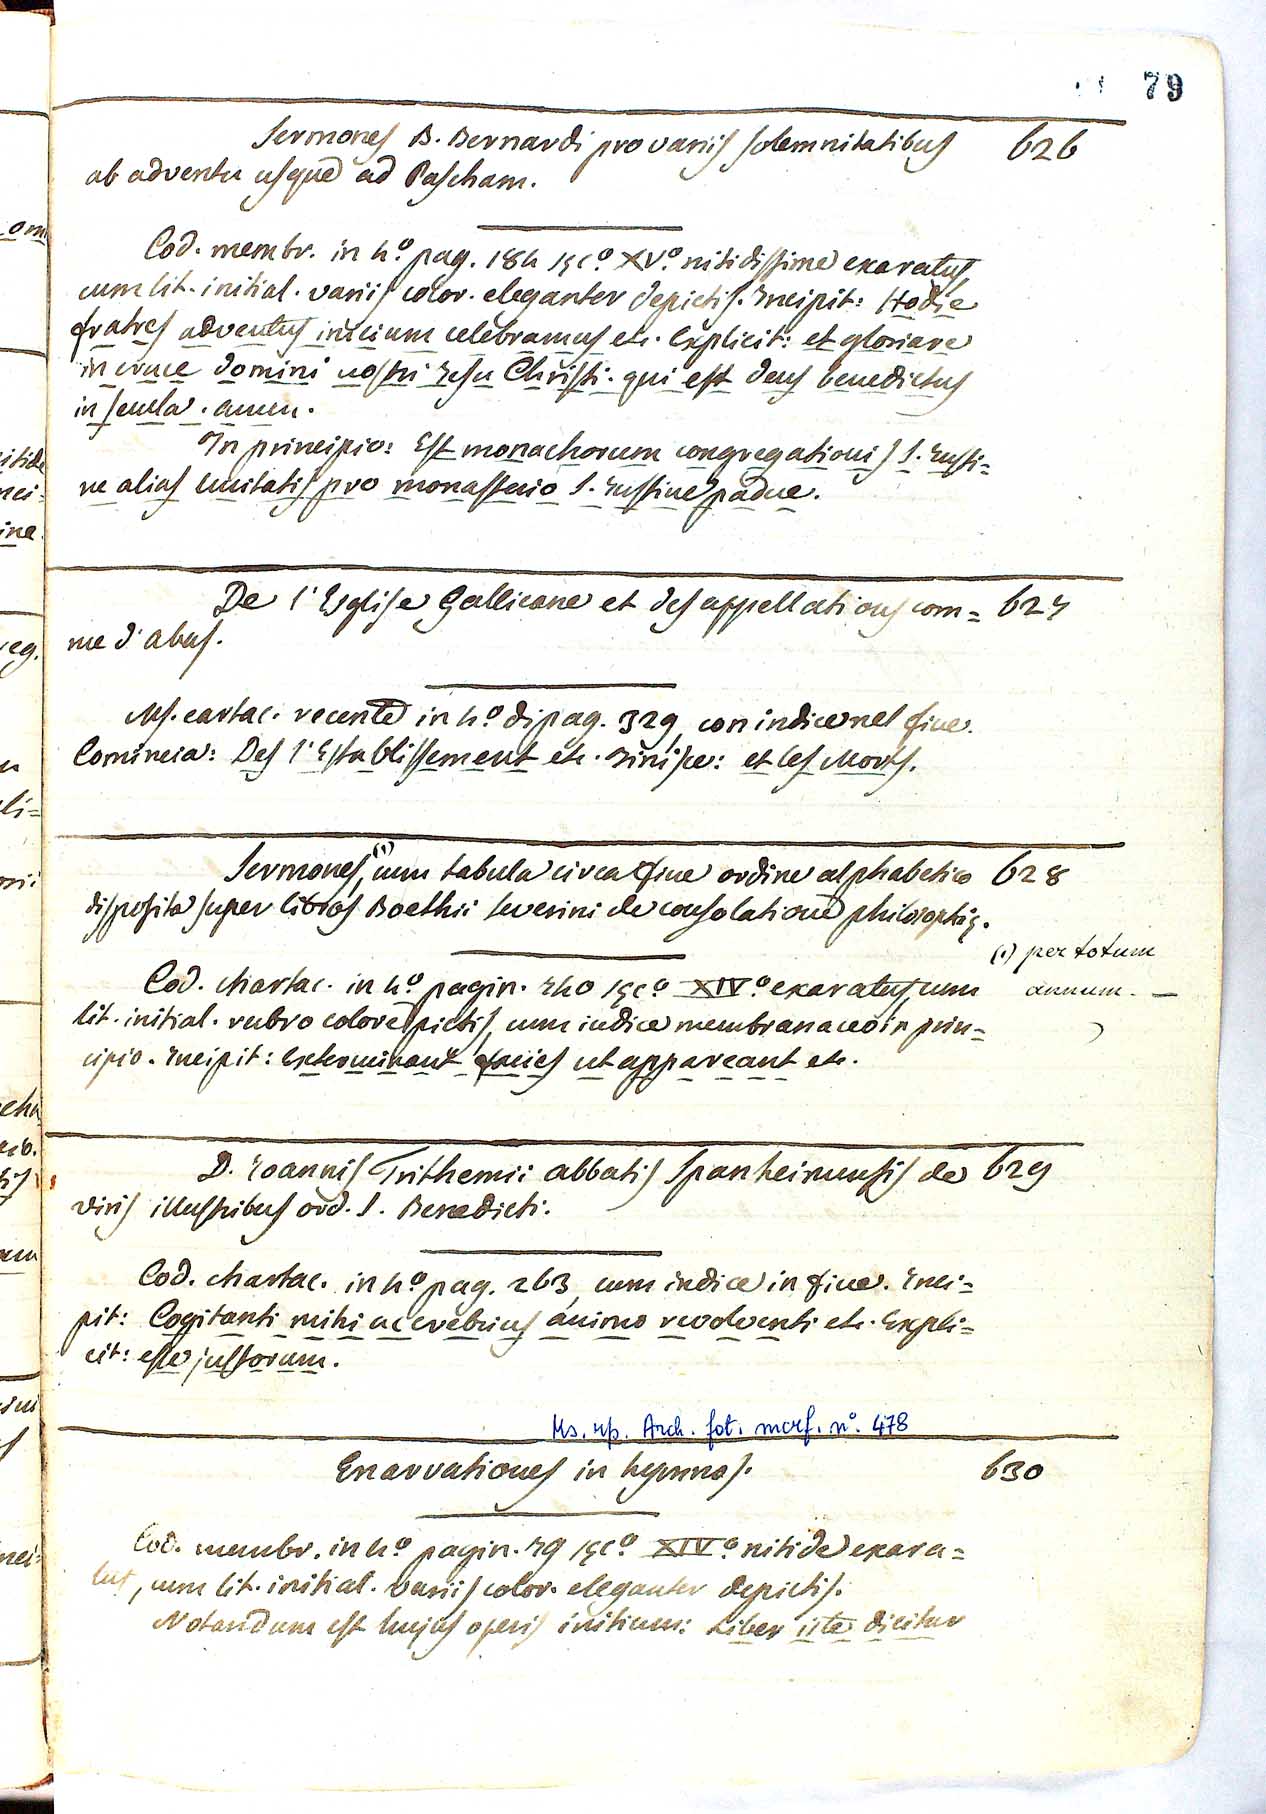 79
Sermones B. Bernardi pro variis solemnitatibus 626
ab adventu usque ad Pascham.
Cod. membr. in 4.º pag. 184 sęc.º XV.º nitidissime exaratus,
cum lit. initial. variis color. eleganter depictis. Incipit: Hodie
fratres adventus inicium celebramus etc. Explicit: et gloriare
in cruce domini nostri Jesu Christi. qui est deus benedictus
in secula. amen.
In principio: Est monachorum congregationis S. Justi=
ne alias unitatis pro monasterio S. Justine padue.
De l'Eglise Gallicane et des appellations com= 627
me d'abus.
Ms. cartac. recente in 4.º di pag. 329, con indice nel fine.
Comincia: Des l'Establissement etc. Finisce: et les Morts.
Sermones,(1) cum tabula circa fine ordine alphabetico 628
disposita super libros Boethii Severini de consolatione philosophię.
(1) per totum
annum. —
Cod. chartac. in 4.º pagin. 740 sęc.º XIV.º exaratus, cum
lit. initial. rubro colore pictis, cum indice membranaceo in prin=
cipio. Incipit: Exterminant facies ut appareant etc.
D. Joannis Trithemii abbatis Spanheimensis de 629
viris illustribus ord. S. Benedicti.
Cod. chartac. in 4.º pag. 263, cum indice in fine. Inci=
pit: Cogitanti mihi ac crebrius animo revolventi etc. Expli=
cit: esse justorum.
Ms. rip. Arch. fot. mcrf. n.º 478
Enarrationes in hymnos. 630
Cod. membr. in 4.º pagin. 79 sęc.º XIV.º nitide exara=
tus, cum lit. initial. variis color. eleganter depictis.
Notandum est hujus operis initium: Liber iste dicitur